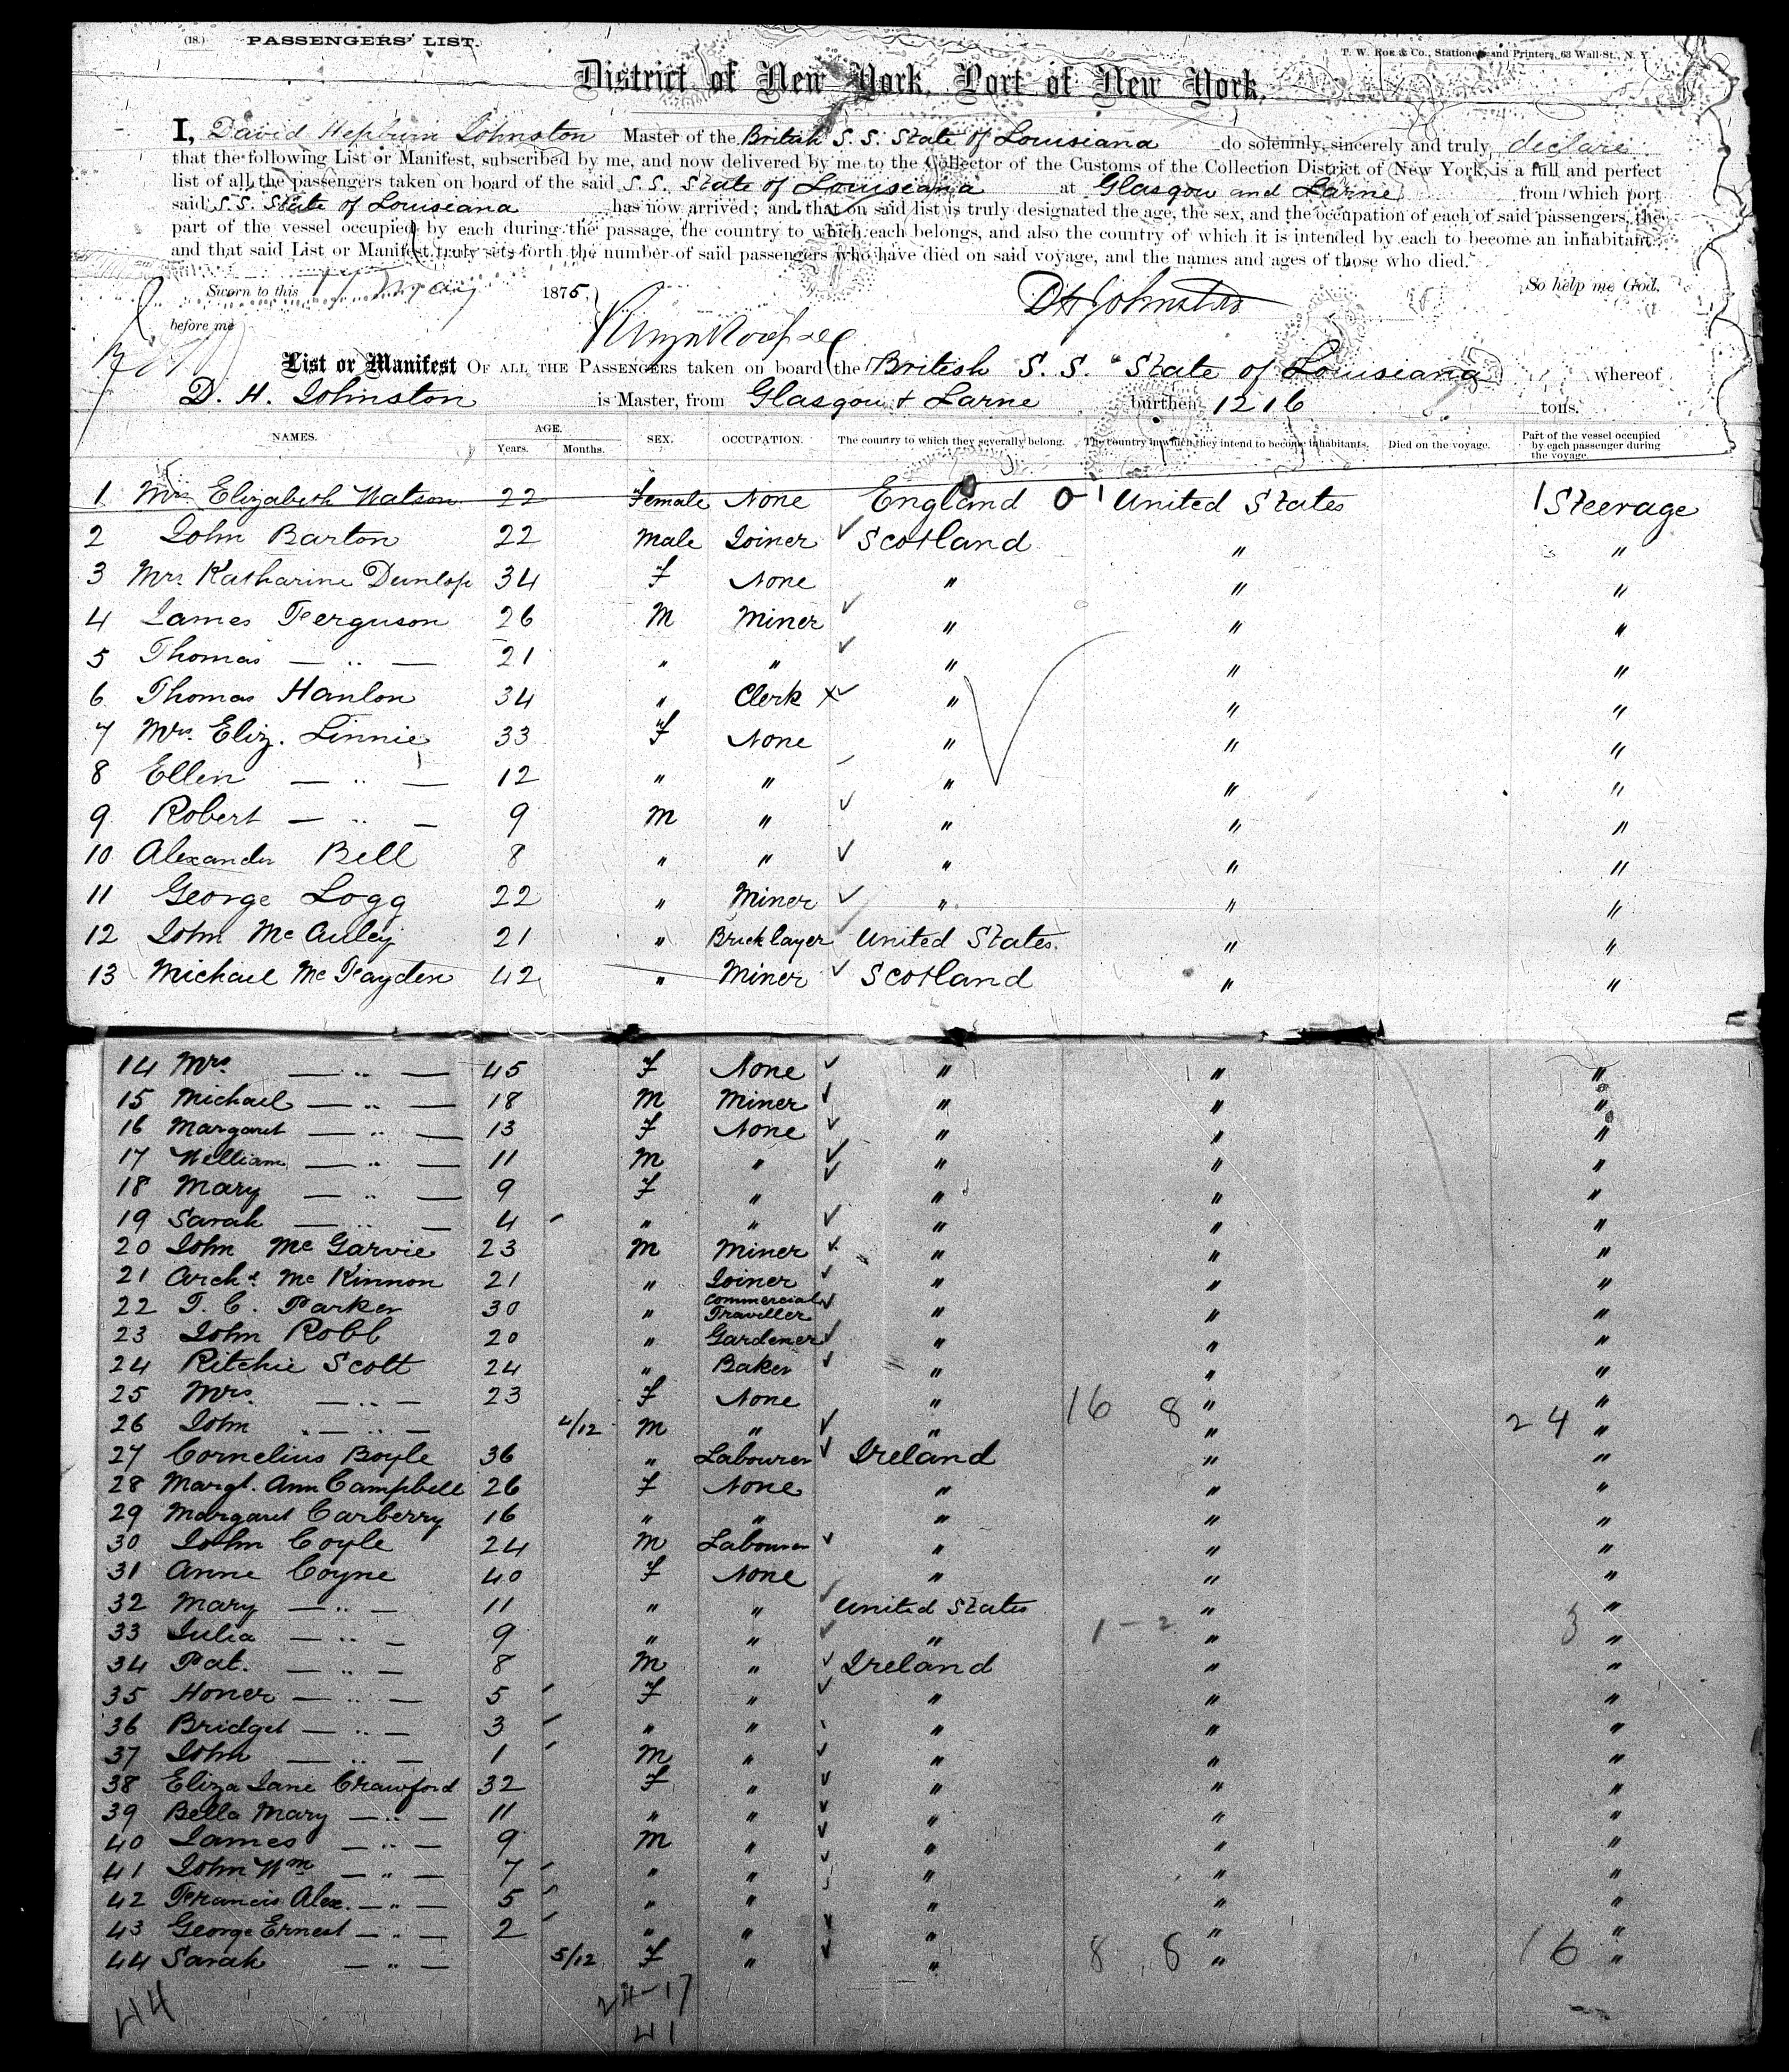 (18.) PASSENGERS' LIST.
T. W. Roe & Co., Stationers and Printers, 63 Wall St., N. Y.
District of New York, Port of New York.
I, David Hepburn Johnston Master of the British S. S. State of Louisiana do solemnly, sincerely and truly declare
that the following List or Manifest, subscribed by me, and now delivered by me to the Collector of the Customs of the Collection District of New York, is a full and perfect
list of all the passengers taken on board of the said S. S. State of Louisiana at Glasgow and Larne from which port
said S. S. State of Louisiana has now arrived; and that on said list is truly designated the age, the sex, and the occupation of each of said passengers, the
part of the vessel occupied by each during the passage, the country to which each belongs, and also the country of which it is intended by each to become an inhabitant;
and that said List or Manifest truly sets forth the number of said passengers who have died on said voyage, and the names and ages of those who died.
Sworn to this 11 May 1875, So help me God.
DHJohnston
before me
List or Manifest OF ALL THE PASSENGERS taken on board the British S. S. "State of Louisiana whereof
D. H. Johnston is Master, from Glasgow & Larne burthen 1216 tons.
NAMES. AGE. Years. Months. SEX. OCCUPATION. The country to which they severally belong. The country in which they intend to become inhabitants. Died on the voyage. Part of the vessel occupied by each passenger during the voyage.
1 Mrs Elizabeth Watson 22 Female None England 0 1 United States 1 Steerage
2 John Barton 22 Male Joiner Scotland " "
3 Mrs Katharine Dunlop 34 F None " " "
4 James Ferguson 26 M Miner " " "
5 Thomas — " — 21 " " " " "
6 Thomas Hanlon 34 " Clerk " " "
7 Mrs. Eliz. Linnie 33 F None " " "
8 Ellen — " — 12 " " " " "
9 Robert — " — 9 M " " " "
10 Alexander Bell 8 " " " " "
11 George Logg 22 " Miner " " "
12 John McAuley 21 " Bricklayer United States " "
13 Michael McFayden 42 " Miner Scotland " "
14 Mrs. — " — 45 F None " " "
15 Michael — " — 18 M Miner " " "
16 Margaret — " — 13 F None " " "
17 William — " — 11 M " " " "
18 Mary — " — 9 F " " " "
19 Sarah — " — 4 " " " " "
20 John McGarvie 23 M Miner " " "
21 Archd. McKinnon 21 " Joiner " " "
22 T. C. Parker 30 " Commercial Traveller " " "
23 John Robb 20 " Gardener " " "
24 Ritchie Scott 24 " Baker " " "
25 Mrs. — " — 23 F None " 16 8 " "
26 John — " — 4/12 M " " " 24 "
27 Cornelius Boyle 36 " Labourer Ireland " "
28 Margt. Ann Campbell 26 F None " " "
29 Margaret Carberry 16 " " " " "
30 John Coyle 24 M Labourer " " "
31 Anne Coyne 40 F None " " "
32 Mary — " — 11 " " United States " "
33 Julia — " — 9 " " " 1-2 " 3 "
34 Pat. — " — 8 M " Ireland " "
35 Honer — " — 5 F " " " "
36 Bridget — " — 3 " " " " "
37 John — " — 1 M " " " "
38 Eliza Jane Crawford 32 F " " " "
39 Bella Mary — " — 11 " " " " "
40 James — " — 9 M " " " "
41 John Wm — " — 7 " " " " "
42 Francis Alex. — " — 5 " " " " "
43 George Ernest — " — 2 " " " " "
44 Sarah — " — 5/12 F " " 8 8 " 16 "
44 24-17
41